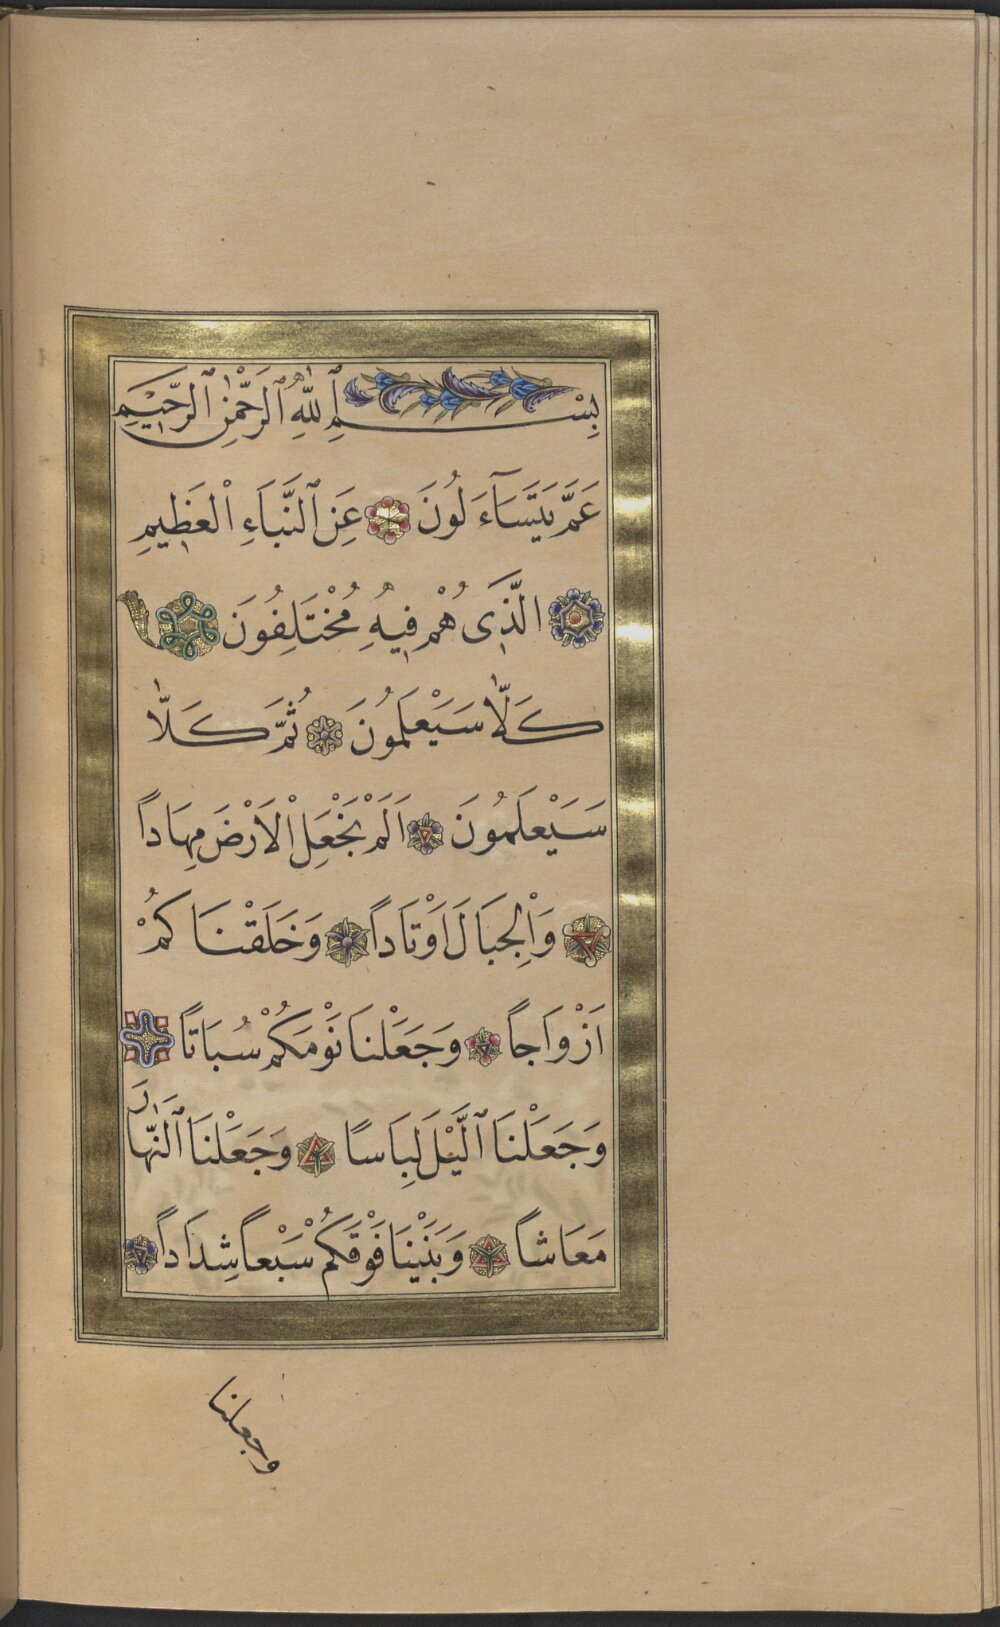 بِسْمِ ٱللّٰهِ ٱلرَّحْمٰنِ ٱلرَّحِيْمِ
عَمَّ يَتَسَآءَلُونَ عَنِ ٱلنَّبَاَءِ الْعَظِيمِ
الَّذِى هُمْ فِيهِ مُخْتَلِفُونَ
كَلَّا سَيَعْلَمُونَ ثُمَّ كَلَّا
سَيَعْلَمُونَ اَلَمْ نَجْعَلِ الْاَرْضَ مِهَاداً
وَاْلجِبَالَ اَوْتَاداً وَخَلَقْنَاكُمْ
اَزْوَاجاً وَجَعَلْنَا نَوْمَكُمْ سُبَاتاً
وَجَعَلْنَا ٱلَّيْلَ لِبَاسًا وَجَعَلْنَا ٱلنَّهَارَ
مَعَاشاً وَبَنَيْنَا فَوْقَكُمْ سَبْعاً شِدَاداً
وجعلنا